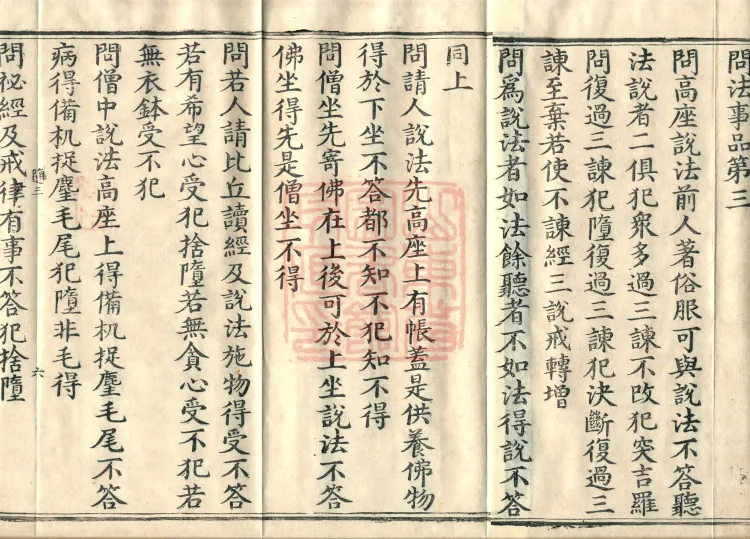 問法事品第三
問高座說法前人著俗服可與說法不答聽
法說者二俱犯眾多過三諫不改犯突吉羅
問復過三諫犯墮復過三諫犯決斷復過三
諫至棄若使不諫經三說戒轉增
問為說法者如法餘聽者不如法得說不答
同上
問請人說法先高座上有帳蓋是供養佛物
得於下坐不答都不知不犯知不得
問僧坐先寄佛在上後可於上坐說法不答
佛坐得先是僧坐不得
問若人請比丘讀經及說法施物得受不答
若有希望心受犯捨墮若無貪心受不犯若
無衣鉢受不犯
問僧中說法高座上得備机捉麈毛尾不答
病得備机捉麈毛尾犯墮非毛得
六
問祕經及戒律有事不答犯捨墮